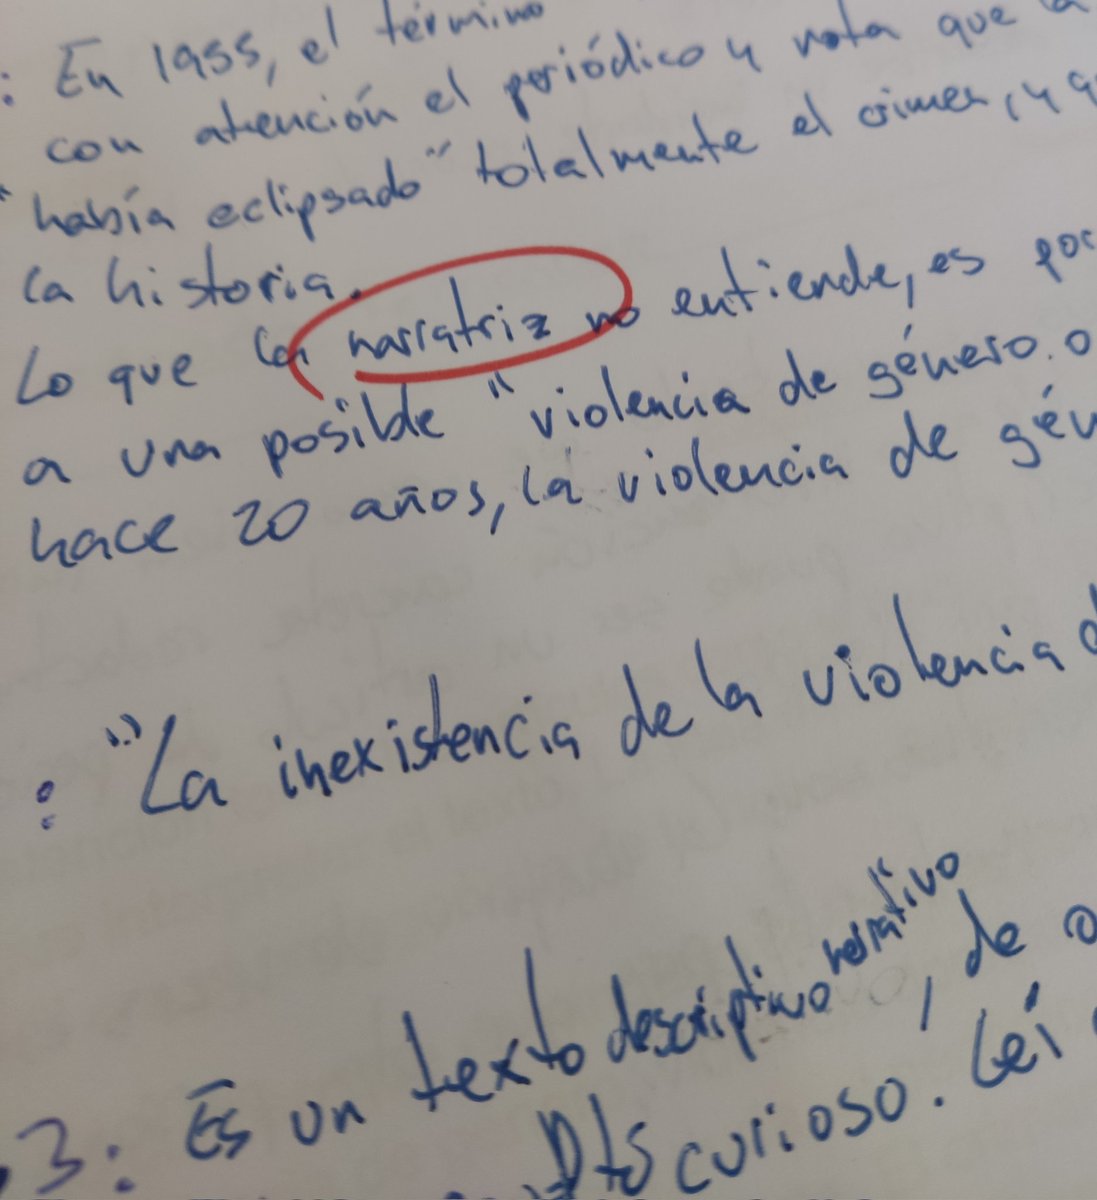 : En 1955, el término
con atención el periódico y nota que la
"había eclipsado" totalmente el crimen, y q
la historia.
Lo que la narratriz no entiende, es por
a una posible "violencia de género. o
hace 20 años, la violencia de gén
: "La inexistencia de la violencia d
narrativo
3: Es un texto descriptivo, de o
curioso. Leí